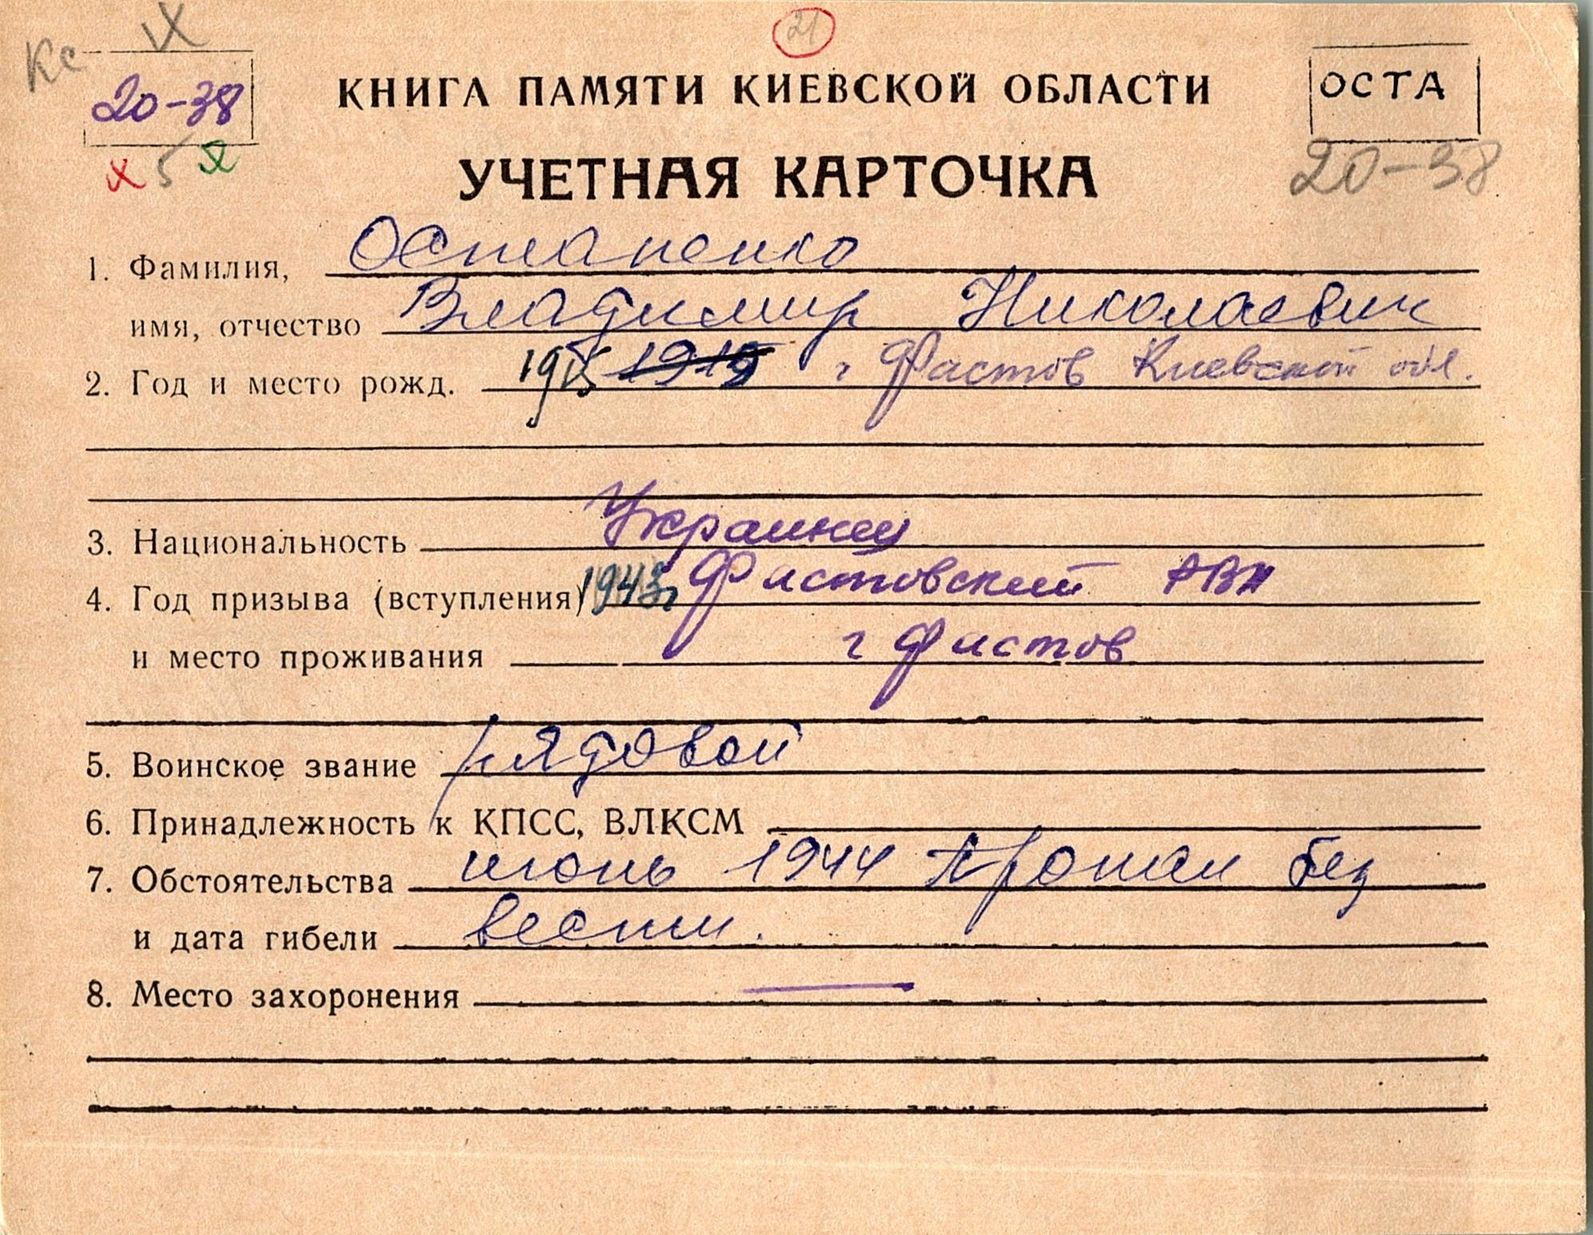 Кс
20-38
5
21
КНИГА ПАМЯТИ КИЕВСКОЙ ОБЛАСТИ
ОСТА
УЧЕТНАЯ КАРТОЧКА
20-38
1. Фамилия, Остапенко
имя, отчество Владимир Николаевич
2. Год и место рожд. 1919 г Фастов Киевской обл.
3. Национальность Украинец
4. Год призыва (вступления) 1943г Фастовский РВК
и место проживания г Фастов
5. Воинское звание рядовой
6. Принадлежность к КПСС, ВЛКСМ
7. Обстоятельства июнь 1944 Пропал без
и дата гибели вести.
8. Место захоронения